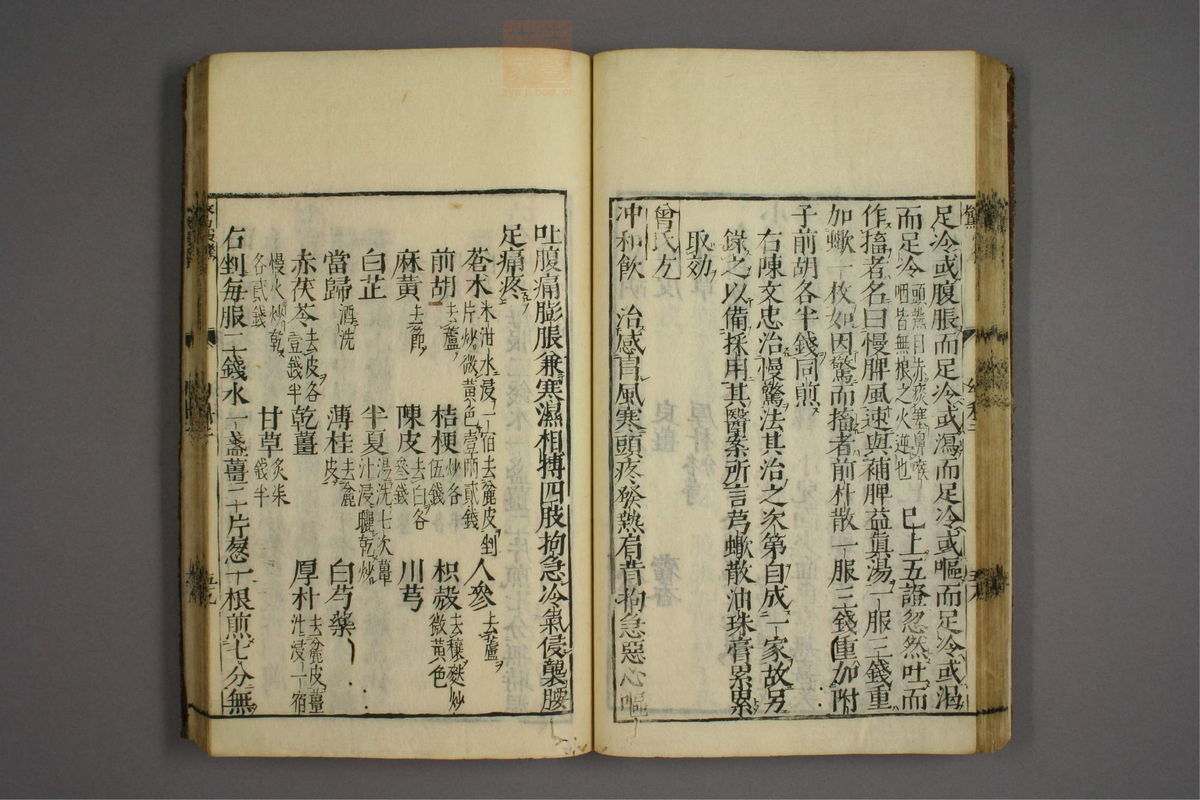 足冷或腹脹而足冷或瀉而足冷或嘔而足冷或渴
而足冷頭熱目赤痰塞鼻喉咽皆無根之火逆也已上五證忽然吐而
作搐者名曰慢脾風速與補脾益真湯一服三錢重
加蠍一枚如因驚而搐者前朴散一服三錢重加附
子前胡各半錢同煎
右陳文忠治慢驚法其治之次第自成一家故另
錄之以備採用其醫案所言芎蠍散油珠膏累累
取効
曾氏方
沖和飲 治感冒風寒頭疼發熱肩背拘急惡心嘔
吐腹痛膨脹兼寒濕相搏四肢拘急冷氣侵襲腰
足痛疼
蒼朮米泔水浸一宿去麄皮剉片炒微黃色壹兩貳錢 人參去蘆
前胡去蘆 桔梗炒各伍錢 枳殼去穰麩炒微黃色
麻黃去節 陳皮去白各叁錢 川芎
白芷 半夏湯洗七次薑汁浸曬乾炒
當歸酒洗 薄桂去麄皮 白芍藥
赤茯苓去皮各壹錢半 乾薑 厚朴去麄皮薑汁浸一宿
慢火炒乾各貳錢 甘草炙柒錢半
右剉每服二錢水一盞薑三片葱一根煎七分無